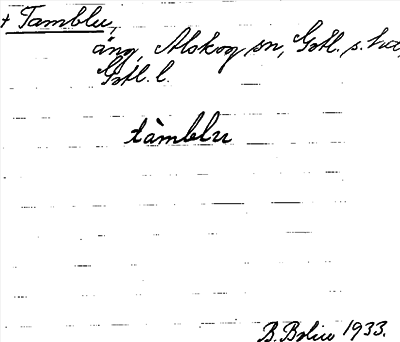 + Tamblu,
äng, Alskog sn, Gotl. s. hd,
Gotl. l.
tàmblu
B. Bolin 1933.